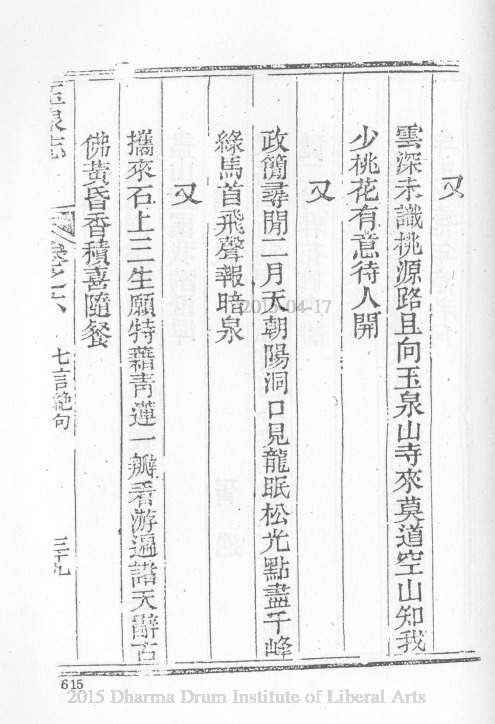 又
雲深未識桃源路且向玉泉山寺來莫道空山知我
少桃花有意待人開
又
政簡尋閒二月天朝陽洞口見龍眠松光點盡千峰
綠馬首飛聲報暗泉
又
攜來石上三生願特藉青蓮一瓣看游遍諸天辭百
佛黃昏香積喜隨餐
玉泉志
卷之六
七言絕句
三十九
615
2015-04-17
2015 Dharma Drum Institute of Liberal Arts